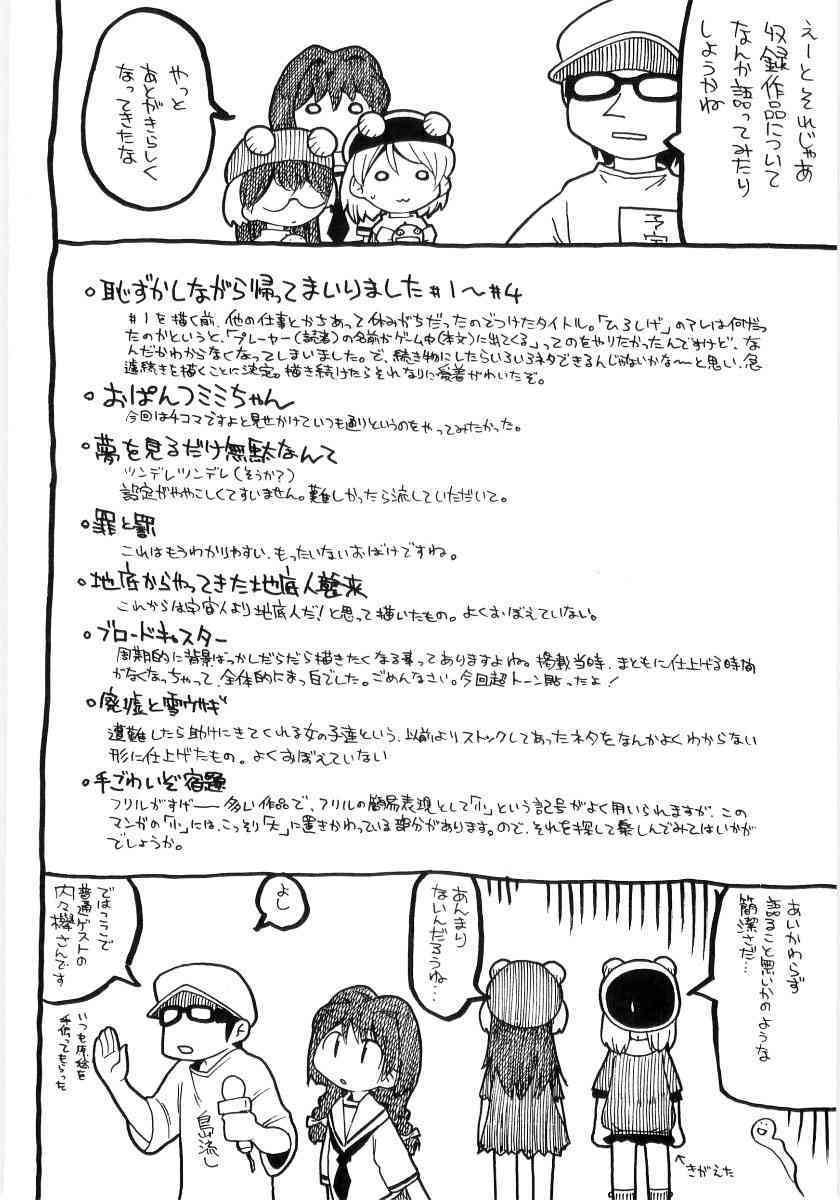 えーとそれじゃあ
収録作品について
なんか語ってみたり
しようかね
予定
やっと
あとがきらしく
なってきたな
。恥ずかしながら帰ってまいりました#1～#4
#1を描く前、他の仕事とかちあって休みがちだったのでつけたタイトル。「ひろしげ」のアレは何だっ
たのかというと、「プレーヤー(読者)の名前がゲーム中(本文)に出てくる」ってのをやりたかったんですけど、な
んだかわからなくなってしまいました。で、続き物にしたらいろいろネタできるんじゃないかな〜と思い、急
遽続きを描くことに決定。描き続けたらそれなりに愛着がわいたぞ。
。おぱんつミミちゃん
今回は4コマですよと見せかけていつも通りというのをやってみたかった。
。夢を見るだけ無駄なんて
ツンデレツンデレ(そうか?)
設定がややこしくてすいません。難しかったら流していただいて。
。罪と罰
これはもうわかりやすい、もったいないおばけですね。
。地底からやってきた地底人襲来
これからは宇宙人より地底人だ!と思って描いたもの。よくおぼえていない。
。ブロードキャスター
周期的に背景ばっかしだらだら描きたくなる事ってありますよね。掲載当時、まともに仕上げる時間
がなくなっちゃって、全体的にまっ白でした。ごめんなさい。今回超トーン貼ったよ!
。廃墟と雪ウサギ
遭難したら助けにきてくれる女の子達という、以前よりストックしてあったネタをなんかよくわからない
形に仕上げたもの。よくおぼえていない
。手ごわいぞ宿題
フリルがすげー多い作品で、フリルの簡易表現として「小」という記号がよく用いられますが、この
マンガの「小」には、こっそり「大」に置きかわっている部分があります。ので、それを探して楽しんでみてはいかが
でしょうか。
あいかわらず
語ること悪いかのような
簡潔さだ…
あんまり
ないんだろうね…
きがえた
よし
ではここで
普通ゲストの
内々欅さんです
いつも原稿を
手伝ってもらった
島流し